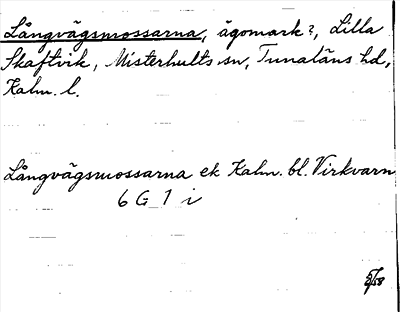 Långvägsmossarna, ägomark?, Lilla
Skaftvik, Misterhults sn, Tunaläns hd,
Kalm. l.
Långvägsmossarna ek Kalm. bl. Virkvarn
6 G 1 i